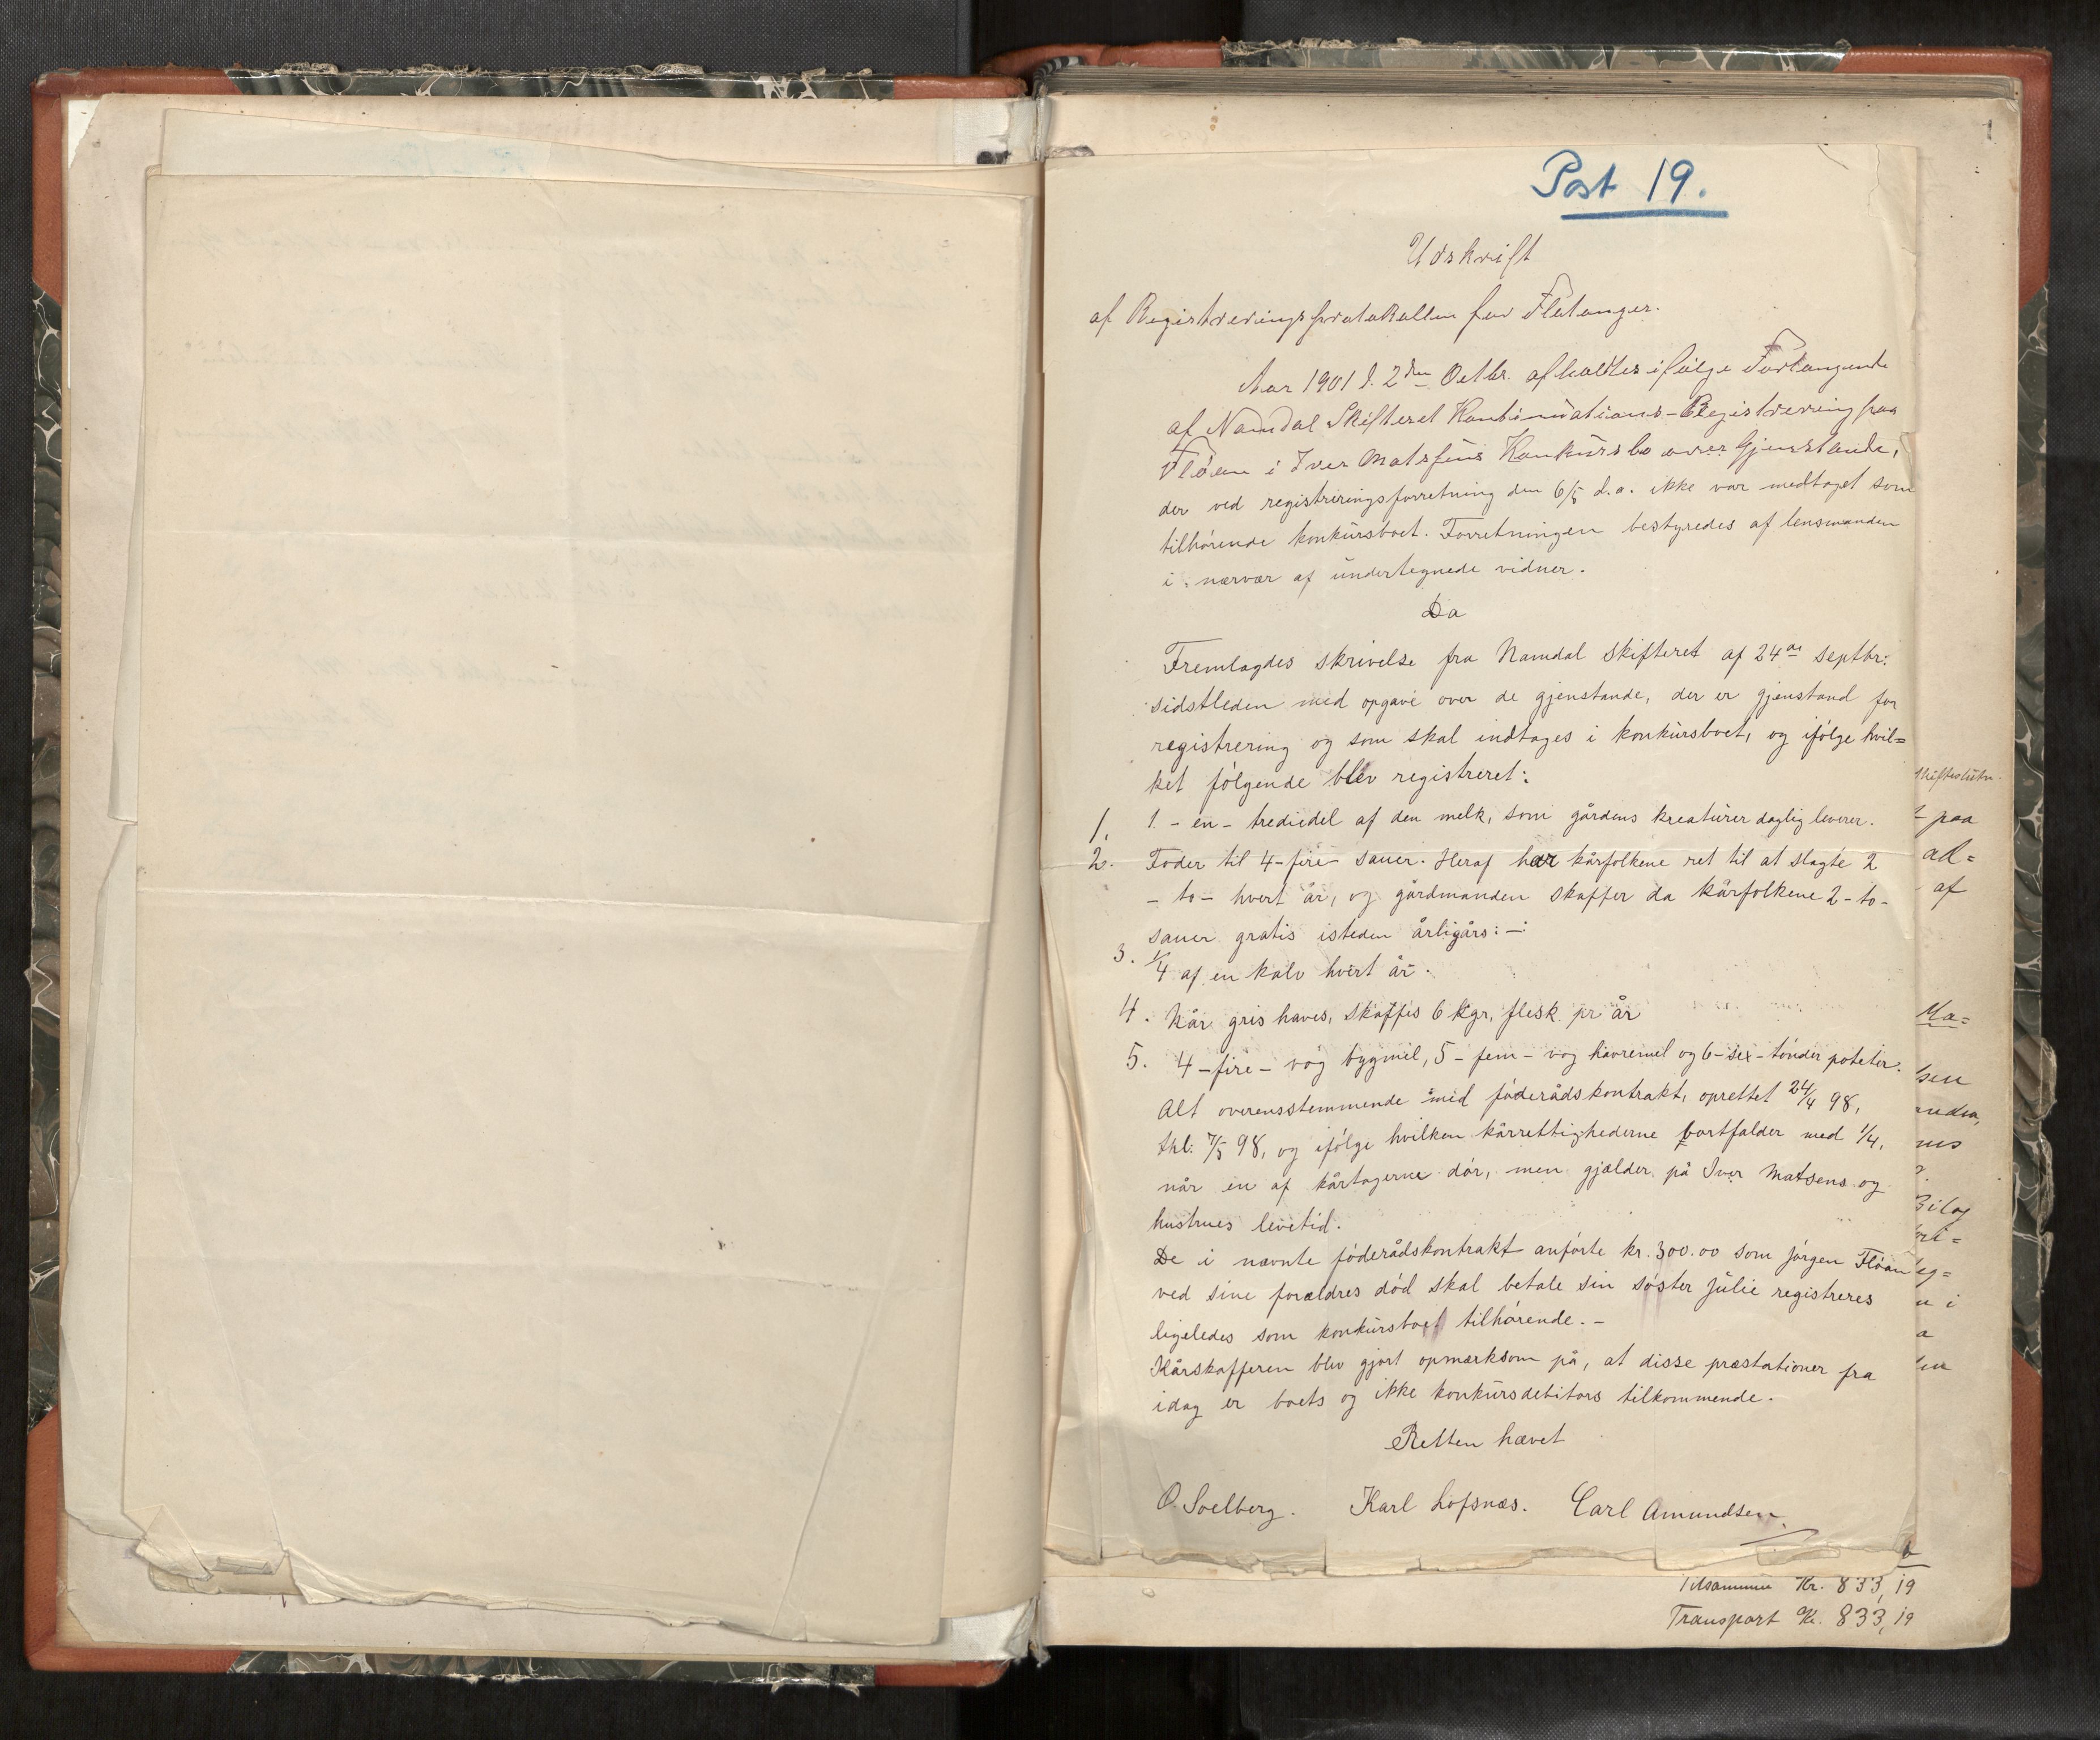 1
Post 19.
Udskrift
af Registreringsprotokollen for Flatanger.
Aar 1901 d. 2den Octbr. afholdtes ifølge Forlangende
af Namdal Skifteret Kontinuations-Registrering paa
Fløan i Iver Matsens Konkursbo over Gjenstande,
der ved registreringsforretning den 6/5 d.a. ikke var medtaget som
tilhørende konkursboet. Forretningen bestyredes af lensmanden
i nærvær af undertegnede vidner.
Da
Fremlagdes skrivelse fra Namdal skifteret af 24de septbr.
sidstleden med opgave over de gjenstande, der er gjenstand for
registrering og som skal indtages i konkursboet, og ifølge hvil=
ket følgende blev registreret:
1. 1 - en - trediedel af den melk, som gårdens kreaturer daglig leverer.
2. Foder til 4-fire sauer. Heraf har kårfolkene ret til at slagte 2
- to - hvert år, og gårdmanden skaffer da kårfolkene 2 - to -
sauer gratis isteden årligårs: -:
3. 1/4 af en kalv hvert år.
4. Når gris haves, skaffes 6 kgr, flesk pr år
5. 4 - fire - vog bygmel, 5 - fem - vog havremel og 6 - sex - tønder poteter.
Alt overensstemmende med føderådskontrakt, oprettet 24/4 98,
thl: 7/5 98, og ifølge hvilken kårrettighederne bortfalder med 1/4,
når en af kårtagerne dør, men gjælder på Iver Matsens og
hustrues levetid.
De i nævnte føderådskontrakt anførte kr. 300.00 som Jørgen Fløan
ved sine forældres død skal betale sin søster Julie registreres
ligeledes som konkursboet tilhørende. -
Kårskafferen blev gjort opmærksom på, at disse præstationer fra
idag er boets og ikke konkursdebitors tilkommende.
Retten hævet
O. Soelberg. Karl Løfsnæs. Carl Amundsen.
paa
ad=
af
Ma=
Bilag
Tilsammen Kr. 833,19
Transport Kr. 833,19